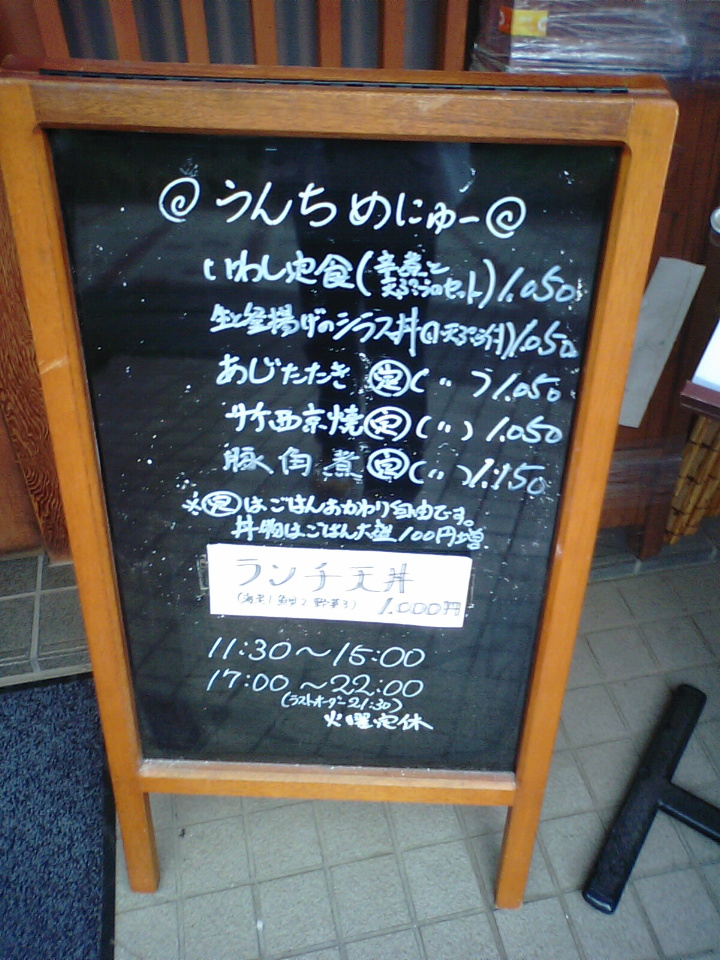 @うんちめにゅー@
いわし定食(辛煮と天ぷらのセット)1.050
生と釜揚げのシラス丼(天ぷら付)1.050
あじたたき 定(〃)1.050
サケ西京焼 定(〃)1.050
豚角煮 定(〃)1.150
※定はごはんおかわり自由です。
丼物はごはん大盛100円増
ランチ天丼
(海老1魚2野菜3) 1.000円
11:30〜15:00
17:00〜22:00
(ラストオーダー21:30)
火曜定休